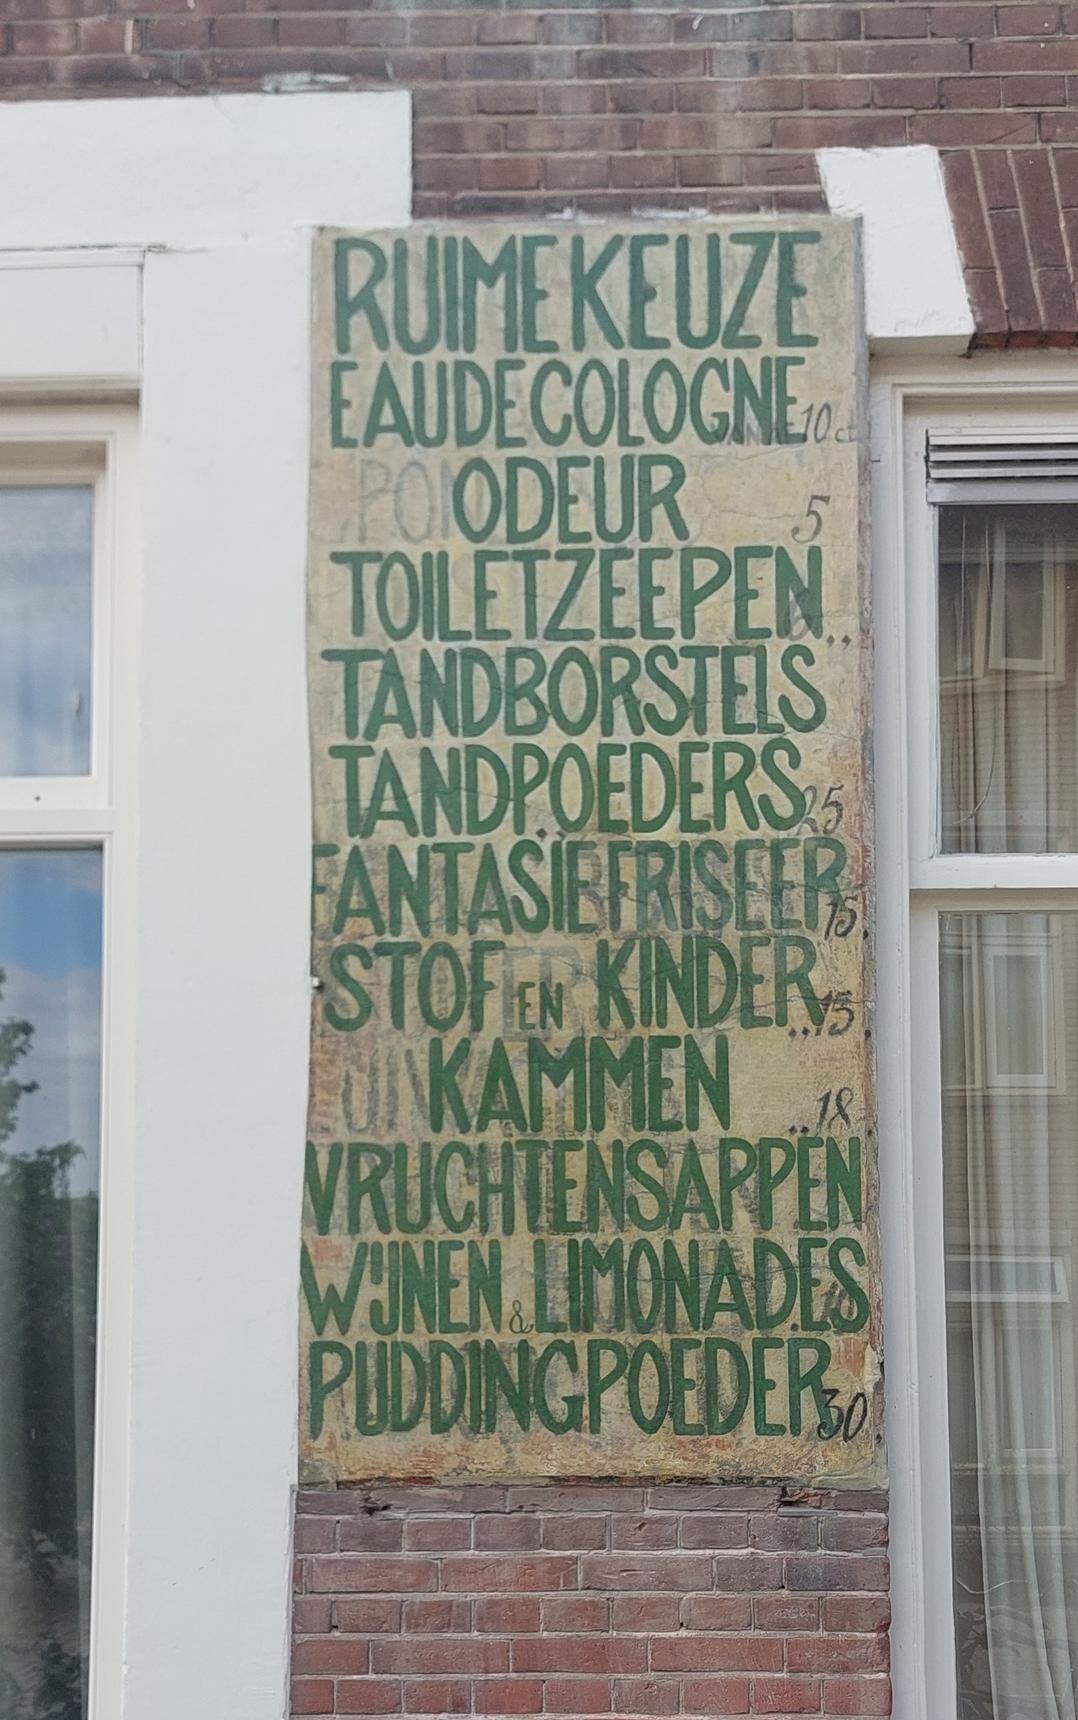 RUIME KEUZE
EAU DE COLOGNE 10 ct
ODEUR 5
TOILETZEEPEN
TANDBORSTELS
TANDPOEDERS 25
FANTASIE FRISEER 15.
STOF EN KINDER „15.
KAMMEN „18.
VRUCHTENSAPPEN
WIJNEN & LIMONADES
PUDDINGPOEDER 30.